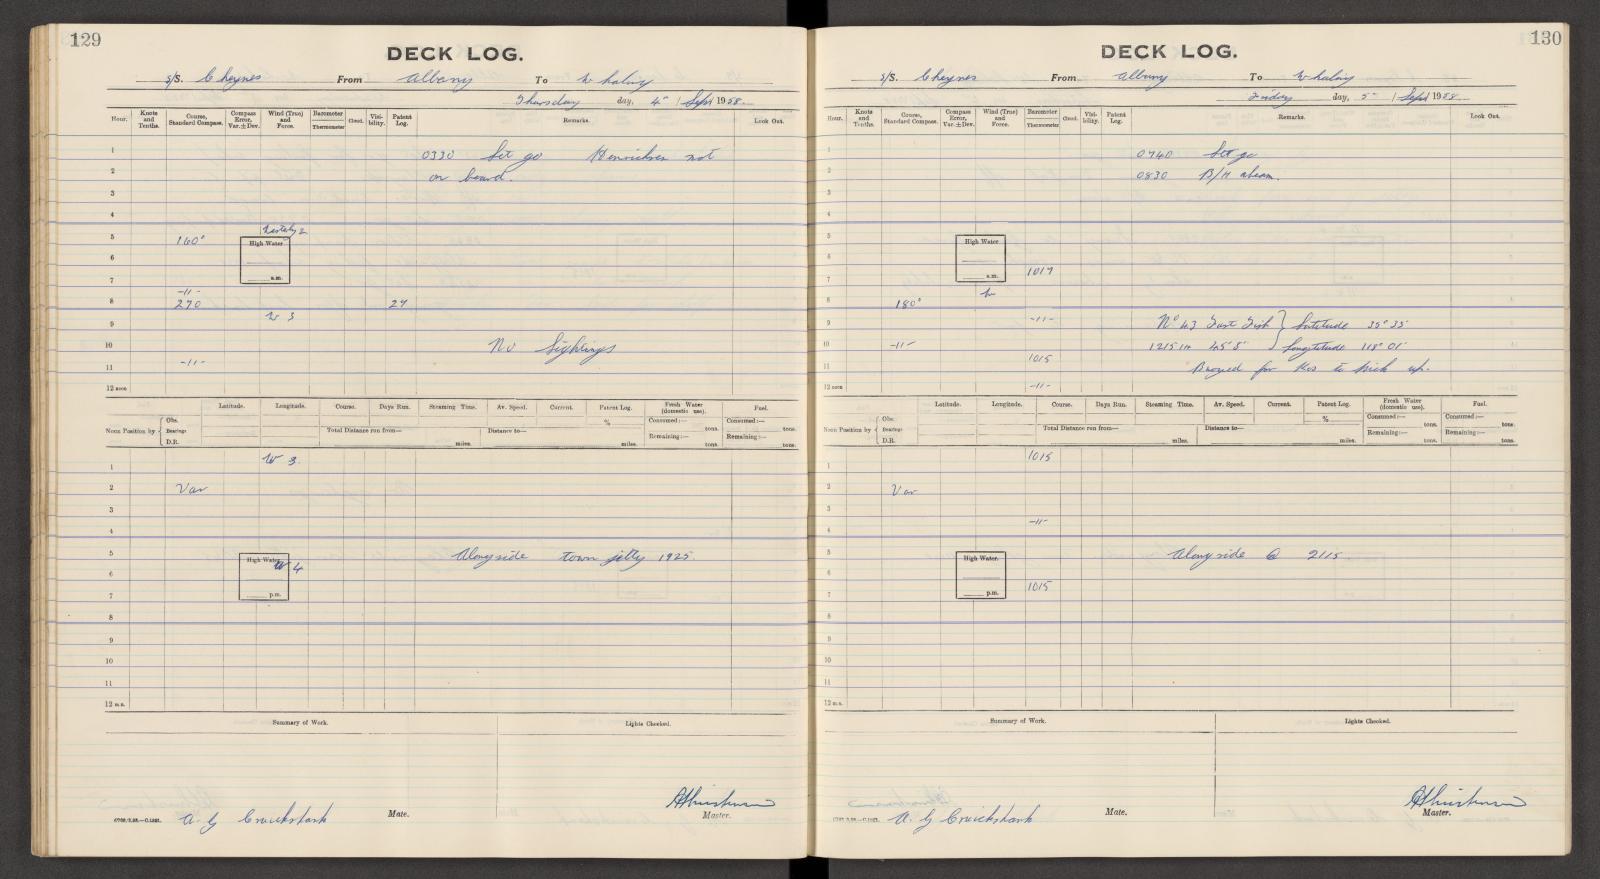 129
DECK LOG.
S/S. Cheynes From Albany To Whaling
Thursday day, 4th / Sept 1958.
Hour. Knots and Tenths. Course, Standard Compass. Compass Error, Var. ± Dev. Wind (True) and Force. Barometer Thermometer Cloud. Visibility. Patent Log. Remarks. Look Out.
1 0330 Let go Henriksen not
2 on board.
3
4
Westerly 2
5 160° High Water
6
7 a.m.
-11-
8 270 27
9 W 3
10 No Sightings
11 -11-
12 noon
Latitude. Longitude. Course. Days Run. Steaming Time. Av. Speed. Current. Patent Log. Fresh Water (domestic use). Fuel.
Noon Position by { Obs. Bearing: D.R. Total Distance run from— miles. Distance to— miles. % Consumed:— tons. Remaining:— tons. Consumed:— tons. Remaining:— tons.
1 W 3
2 Var
3
4
5 High Water Alongside town jetty 1925
6 W 4
7 p.m.
8
9
10
11
12 m.n.
Summary of Work. Lights Checked.
A. G Cruickshank Mate. Master.
130
DECK LOG.
S/S. Cheynes From Albany To Whaling
Friday day, 5th / Sept 1958.
Hour. Knots and Tenths. Course, Standard Compass. Compass Error, Var. ± Dev. Wind (True) and Force. Barometer Thermometer Cloud. Visibility. Patent Log. Remarks. Look Out.
1 0740 Let go
2 0830 B/H abeam.
3
4
5 High Water
6
7 a.m. 1017
8 180° W
9 -11- No 43 Fast Fish } Latitude 35° 35'
10 -11- 1215 H 45' 5" Longtitude 118° 01'
11 1015 Buoyed for Kos to pick up.
12 noon -11-
Latitude. Longitude. Course. Days Run. Steaming Time. Av. Speed. Current. Patent Log. Fresh Water (domestic use). Fuel.
Noon Position by { Obs. Bearing: D.R. Total Distance run from— miles. Distance to— miles. % Consumed:— tons. Remaining:— tons. Consumed:— tons. Remaining:— tons.
1 1015
2 Var
3
4 -11-
5 High Water. Alongside @ 2115.
6
7 p.m. 1015
8
9
10
11
12 m.n.
Summary of Work. Lights Checked.
A. G Cruickshank Mate. Master.